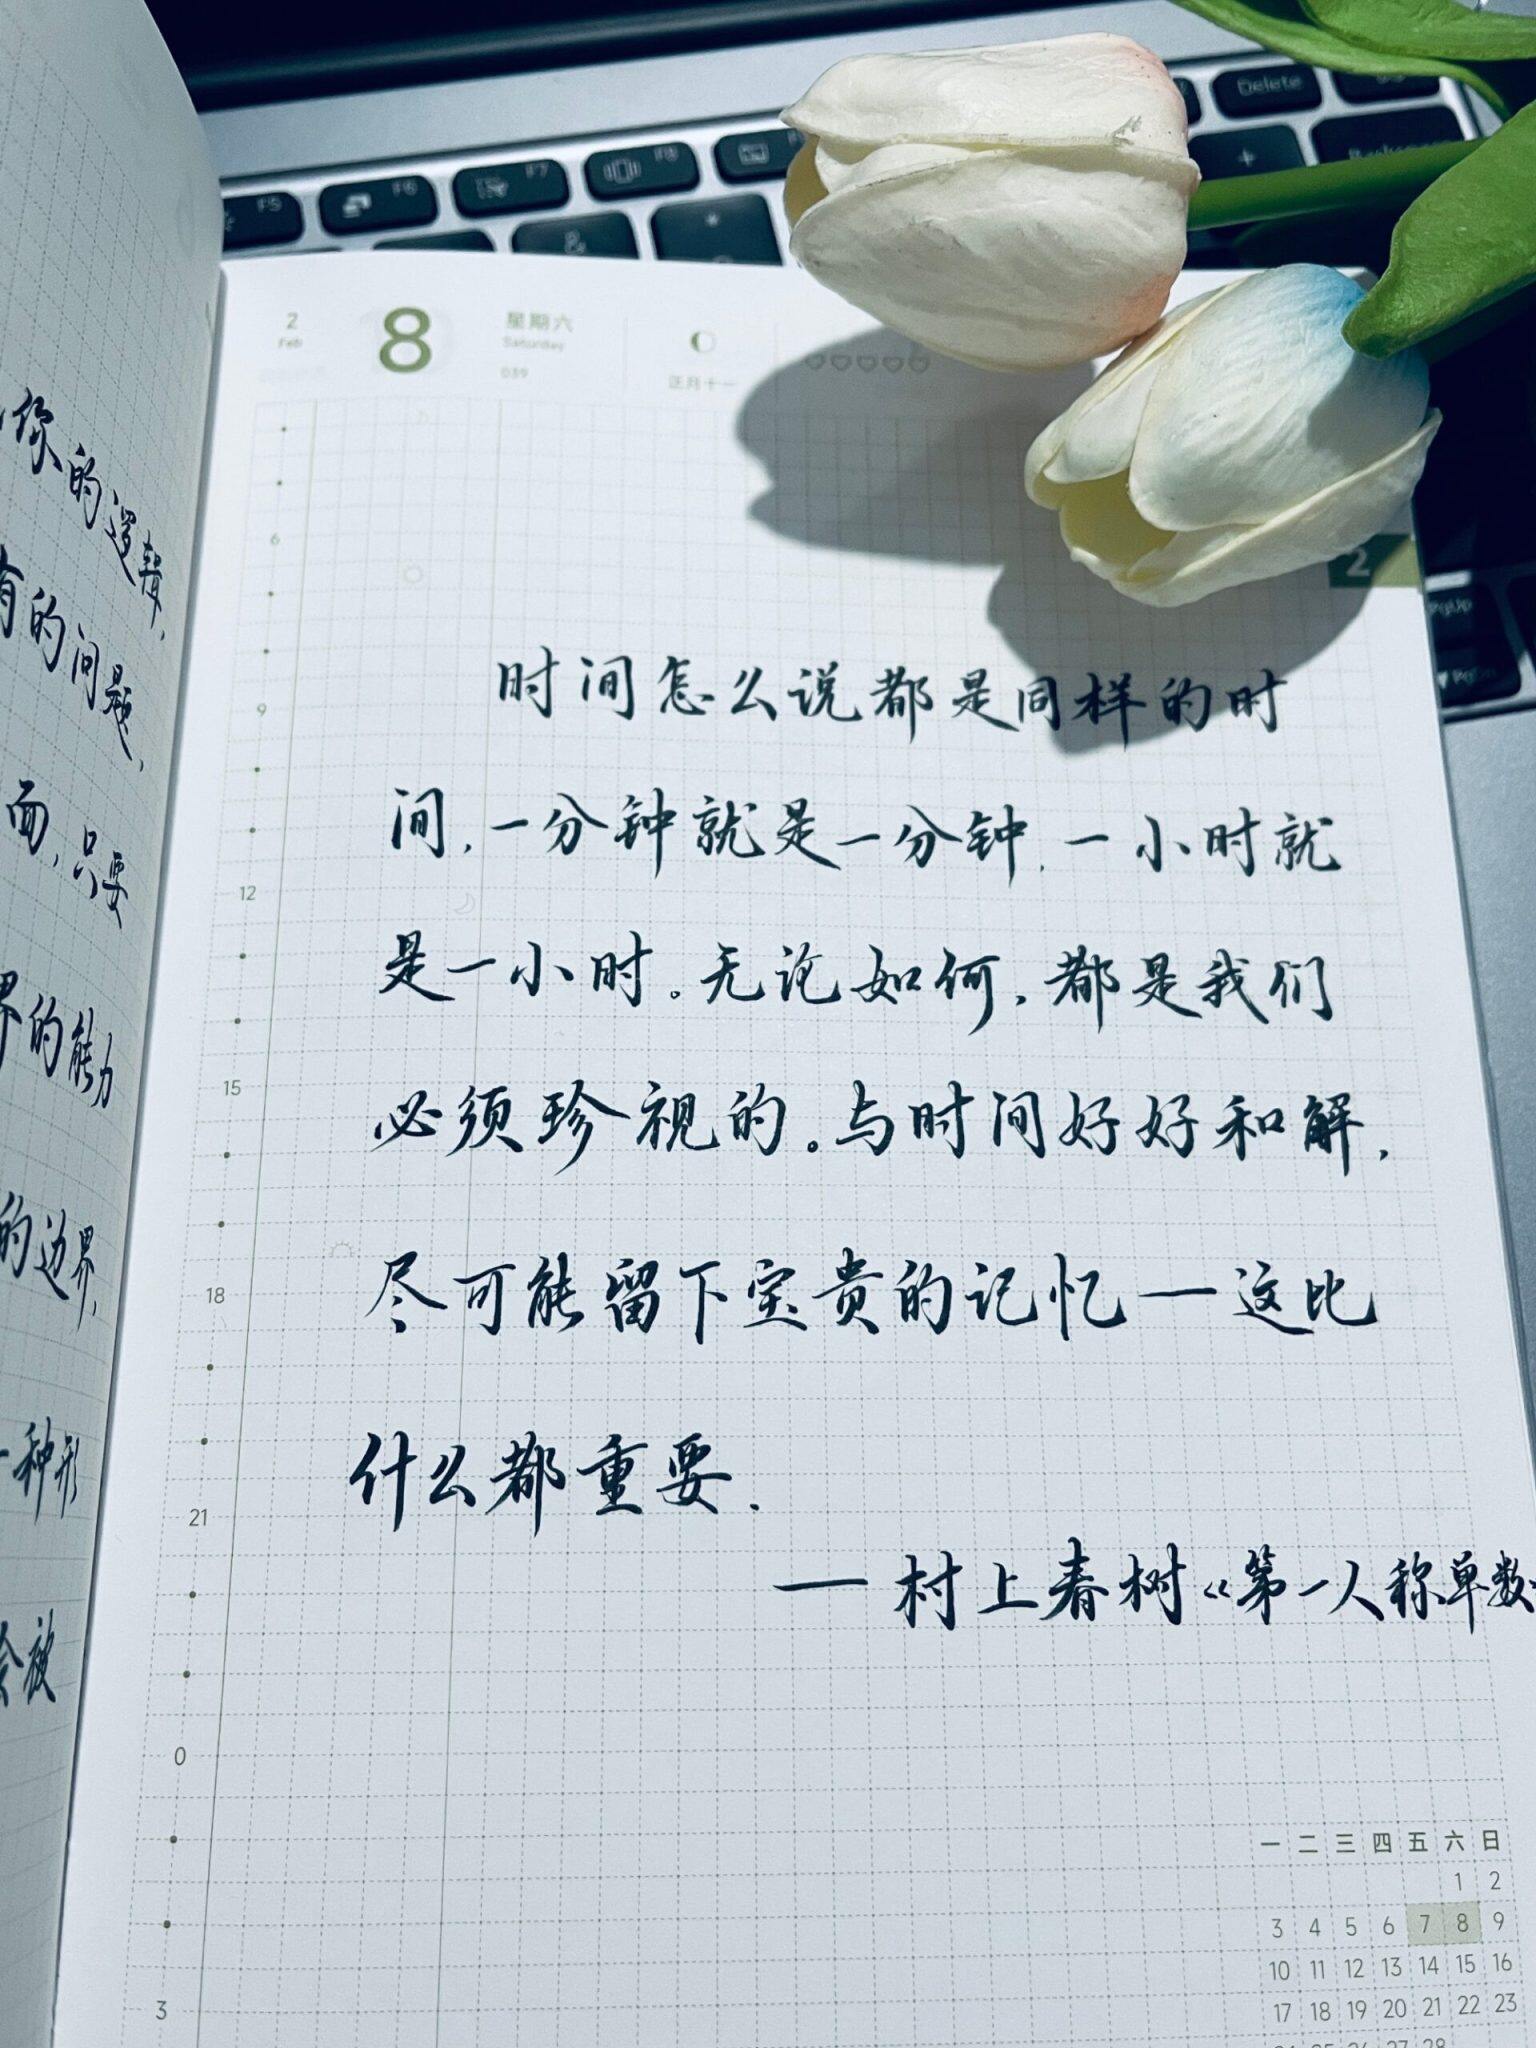 F5
F6
F7
F8
Delete
&
*
+
Backspace
2
Feb
8
星期六
Saturday
039
正月十一
2
PgUp
6
9
12
15
18
21
0
3
你的逻辑,
有的问题,
面,只要
界的能力
的边界,
一种形
会被
时间怎么说都是同样的时
间,一分钟就是一分钟,一小时就
是一小时。无论如何,都是我们
必须珍视的。与时间好好和解,
尽可能留下宝贵的记忆—这比
什么都重要.
—村上春树《第一人称单数
一 二 三 四 五 六 日
1 2
3 4 5 6 7 8 9
10 11 12 13 14 15 16
17 18 19 20 21 22 23
24 25 26 27 28